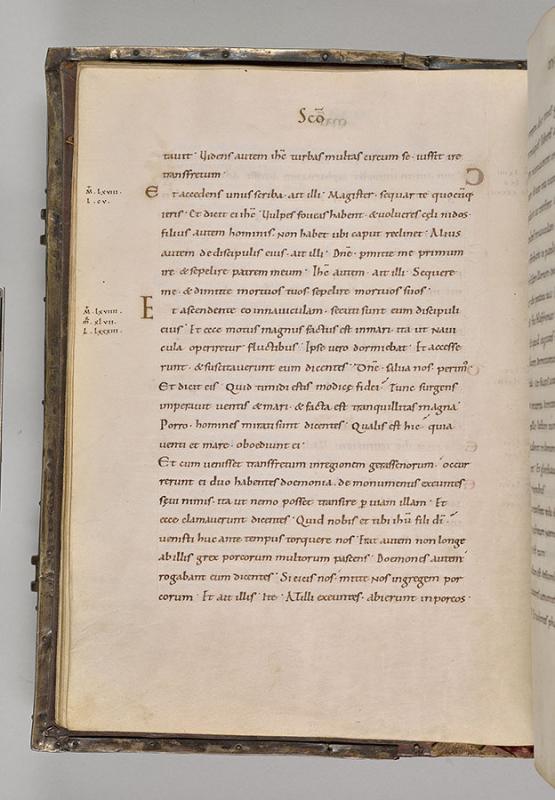 Scō
tavit · Videns autem ihē turbas multas circum se · iussit ire
transfretum ·
M̄. LXVIII.
L. CV.
Et accedens unus scriba · ait illi · Magister · sequar te quocūq
ieris · Et dicit ei ihē · Vulpes foveas habent · & volucres cęli nidos ·
filius autem hominis · Non habet ubi caput reclinet · Alius
autem de discipulis eius · ait illi · Dn̄e · pmitte me primum
ire & sepelire patrem meum · Ihē autem · ait illi · Sequere
me · & dimitte mortuos tuos sepelire mortuos suos ·
M̄. LXVIIII.
M̄. XLVII.
L. LXXXIII.
Et ascendente eo innaviculam · secuti sunt eum discipuli
eius · Et ecce motus magnus factus est inmari · ita ut navi
cula operiretur fluctibus · Ipse vero dormiebat · Et accesse
runt · & suscitaverunt eum dicentes · Dn̄e · salva nos · perim᷒ ·
Et dicit eis · Quid timidi estis modicę fidei · Tunc surgens
imperavit ventis & mari · & facta est tranquillitas magna ·
Porro · homines mirati sunt dicentes · Qualis est hic · quia
venti et mare · oboediunt ei ·
Et cum venisset transfretum inregionem gerassenorum · occur
rerunt ei duo habentes doemonia · de monumentis exeuntes
sęvi nimis · ita ut nemo posset transire p viam illam · Et
ecce clamaverunt dicentes · Quid nobis et tibi ihū fili dī ·
venisti huc ante tempus torquere nos · Erat autem non longe
ab illis grex porcorum multorum pascens · Doemones autem
rogabant eum dicentes · Si eicis nos · mitte nos ingregem por
corum · Et ait illis · Ite · At illi exeuntes · abierunt inporcos ·